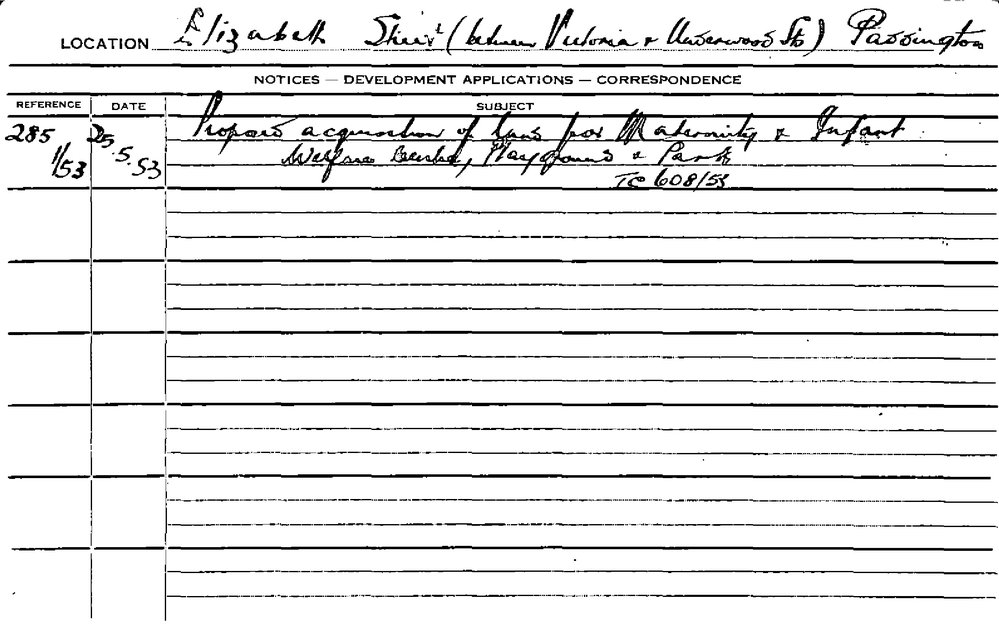 LOCATION Elizabeth Street (between Victoria & Underwood Sts) Paddington
NOTICES — DEVELOPMENT APPLICATIONS — CORRESPONDENCE
REFERENCE DATE SUBJECT
285 25. Proposed acquisition of land for Maternity & Infant
1/53 5.53 Welfare Centre, Playground & Park
TC 608/53